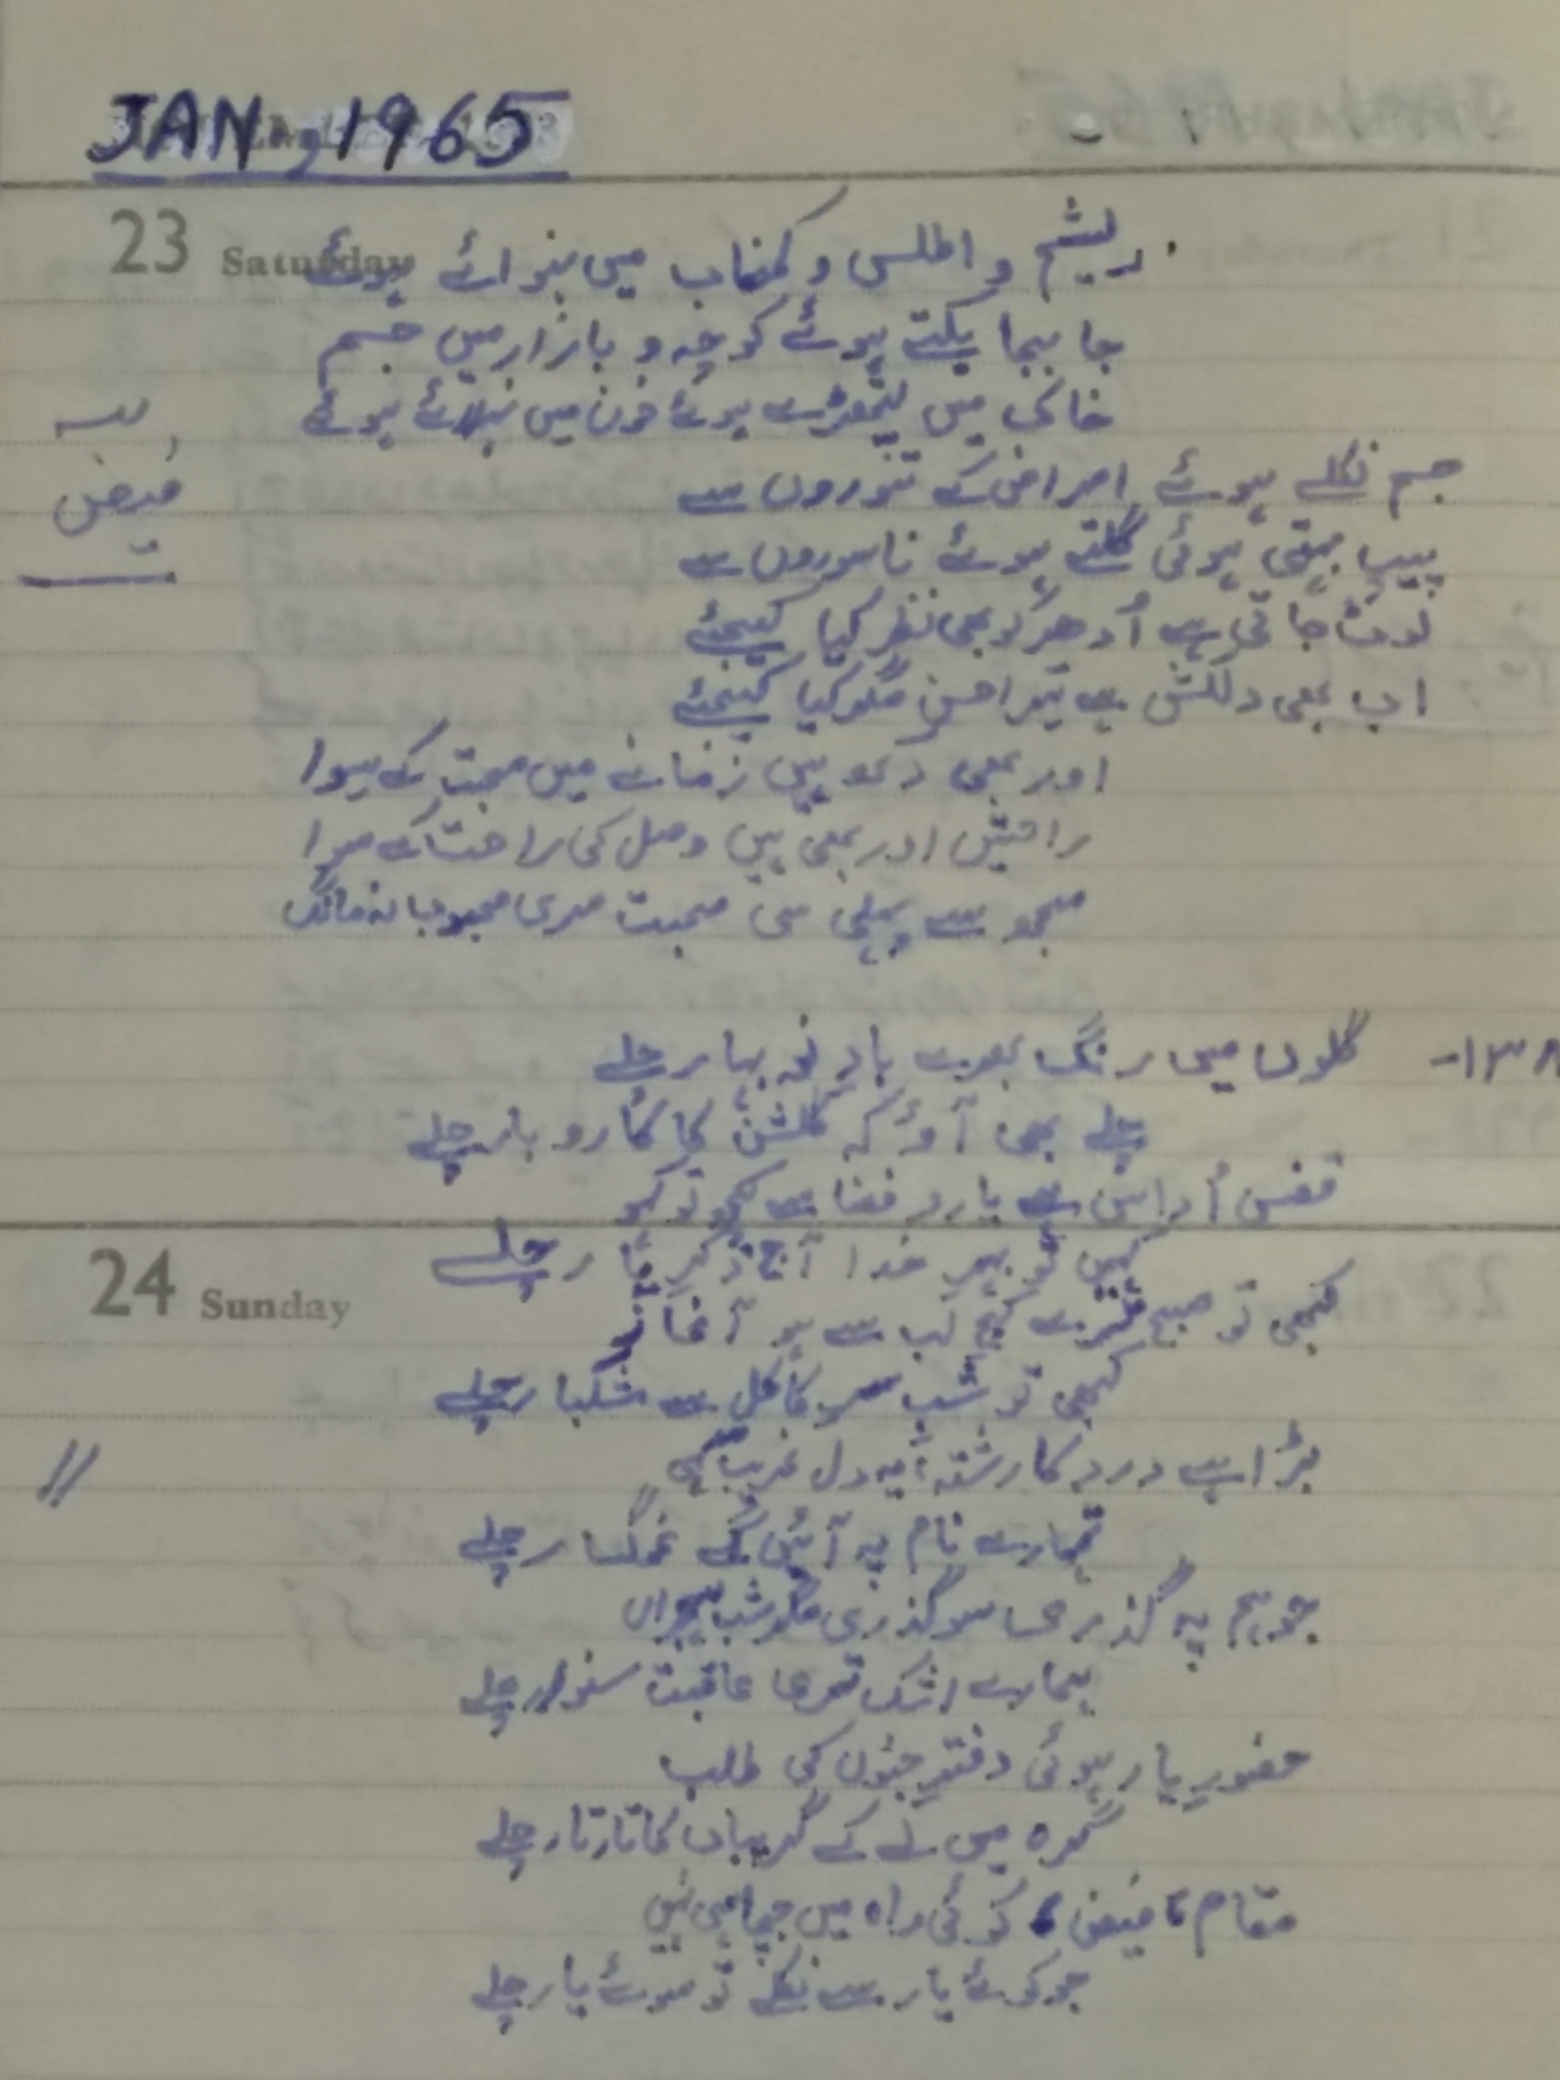 JAN, 1965
23 Saturday
ریشم و اطلس و کمخاب میں بنوائے ہوئے
جا بجا بکتے ہوئے کوچہ و بازار میں جسم
خاک میں لتھڑے ہوئے خون میں نہلائے ہوئے
جسم نکلے ہوئے امراض کے تنوروں سے
فیض
پیپ بہتی ہوئی گلتے ہوئے ناسوروں سے
لوٹ جاتی ہے اُدھر کو بھی نظر کیا کیجئے
اب بھی دلکش ہے تیرا حسن مگر کیا کیجئے
اور بھی دکھ ہیں زمانے میں محبت کے سوا
راحتیں اور بھی ہیں وصل کی راحت کے سوا
مجھ سے پہلی سی محبت مری محبوب نہ مانگ
۱۳۸- گلوں میں رنگ بھرے بادِ نو بہار چلے
چلے بھی آؤ کہ گلشن کا کاروبار چلے
قفس اُداس ہے یارو فضا سے کچھ تو کہو
کہیں تو بہرِ خدا آج ذکرِ یار چلے
24 Sunday
کبھی تو صبح ترے کنجِ لب سے ہو آغاز
کبھی تو شب سرِ کاکل سے مشکبار چلے
بڑا ہے درد کا رشتہ، یہ دل غریب سہی
//
تمہارے نام پہ آئیں گے غمگسار چلے
جو ہم پہ گذری سو گذری مگر شبِ ہجراں
ہمارے اشک تری عاقبت سنوار چلے
حضورِ یار ہوئی دفترِ جنوں کی طلب
گرہ میں لے کے گریباں کا تار تار چلے
مقام، فیض، کوئی راہ میں جچا ہی نہیں
جو کوئے یار سے نکلے تو سوئے یار چلے